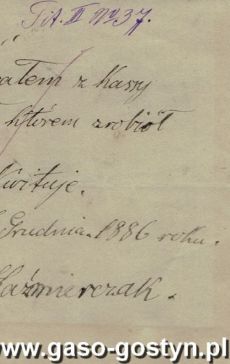 Tit. II No 37.
ałem z Kassy
którem zrobiół
Kwituje.
Grudnia 1886 roku.
Kaźmierczak.
www.gaso-gostyn.pl